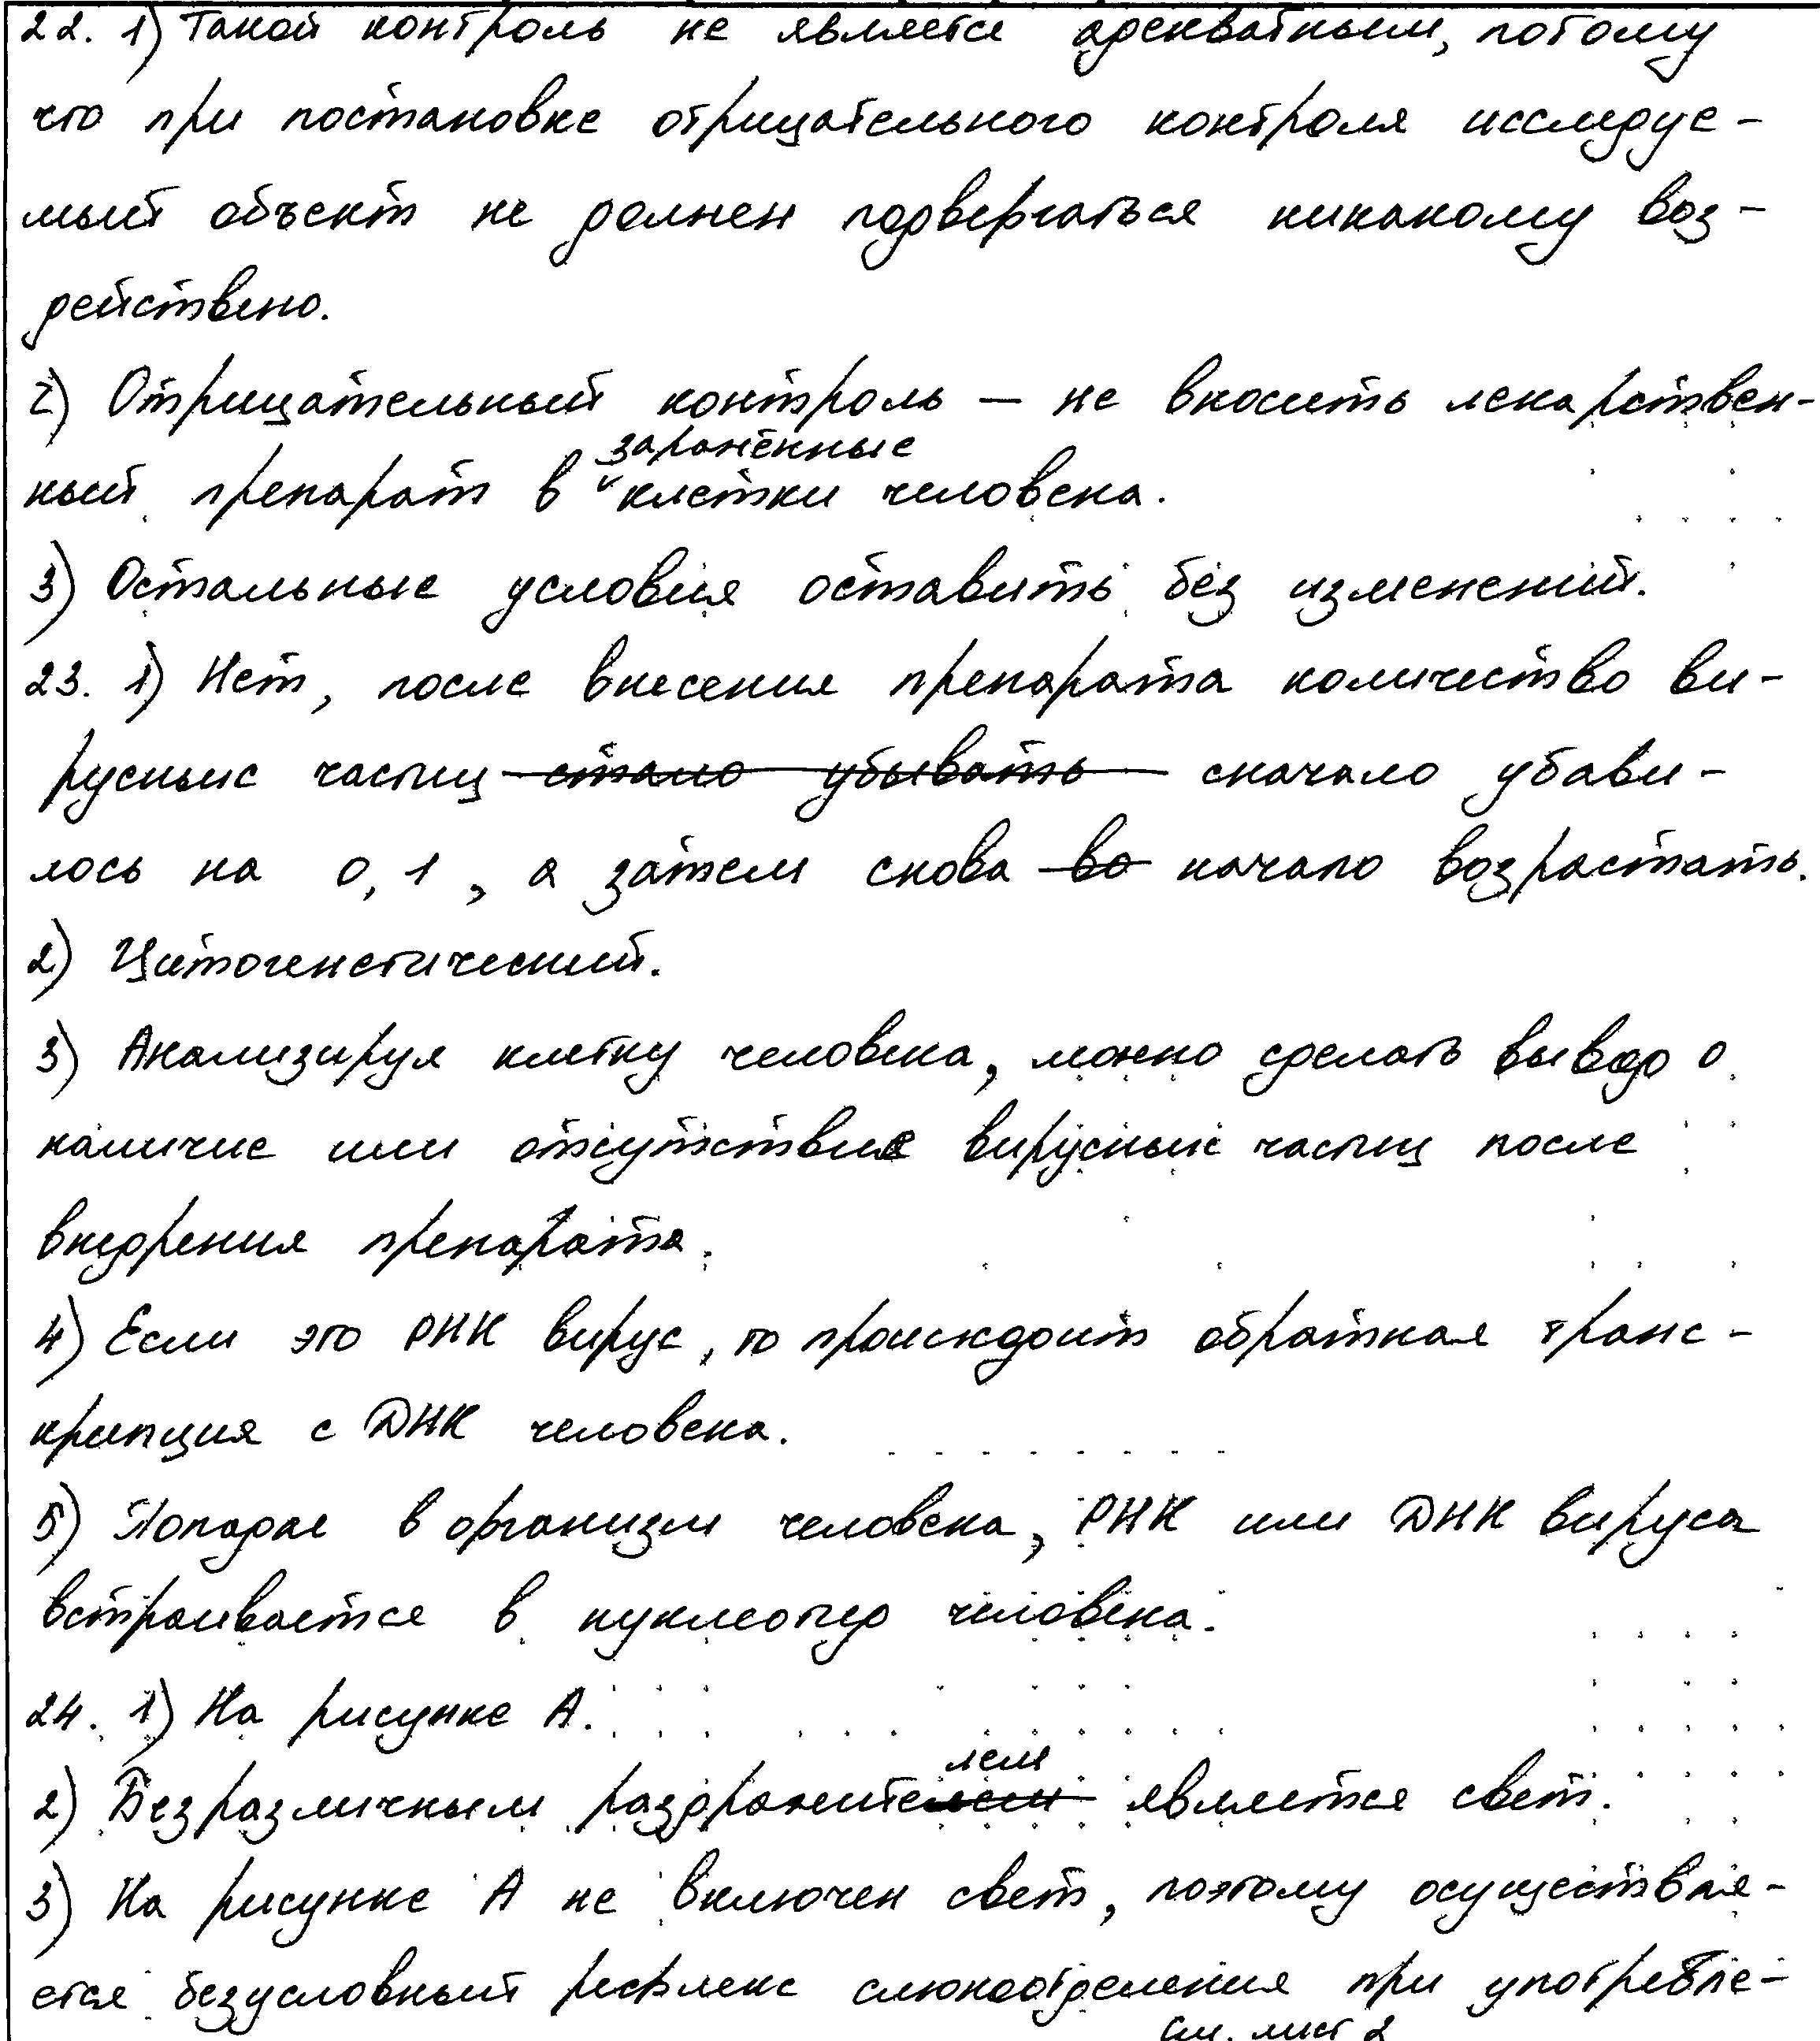 22. 1) Такой контроль не является адекватным, потому
что при постановке отрицательного контроля исследуе-
мый объект не должен подвергаться никакому воз-
действию.
2) Отрицательный контроль — не вносить лекарствен-
ный препарат в заражённые клетки человека.
3) Остальные условия оставить без изменений.
23. 1) Нет, после внесения препарата количество ви-
русных частиц стало убывать сначало убави-
лось на 0,1, а затем снова во начало возрастать.
2) Цитогенетический.
3) Анализируя клетку человека, можно сделать вывод о
наличие или отсутствие вирусных частиц после
внедрения препарата.
4) Если это РНК вирус, то происходит обратная транс-
крипция с ДНК человека.
5) Попадая в организм человека, РНК или ДНК вируса
встраивается в нуклеотид человека.
24. 1) На рисунке А.
2) Безразличным раздражителем является свет.
3) На рисунке А не включен свет, поэтому осуществля-
ется безусловный рефлекс слюноотделения при употребле-
см. лист 2